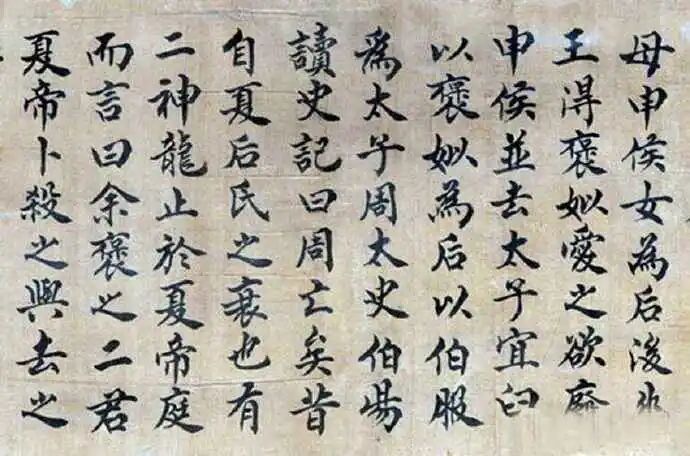 母申侯女為后後幽
王得褒姒愛之欲廢
申侯並去太子宜臼
以褒姒為后以伯服
為太子周太史伯陽
讀史記曰周亡矣昔
自夏后氏之衰也有
二神龍止於夏帝庭
而言曰余褒之二君
夏帝卜殺之與去之